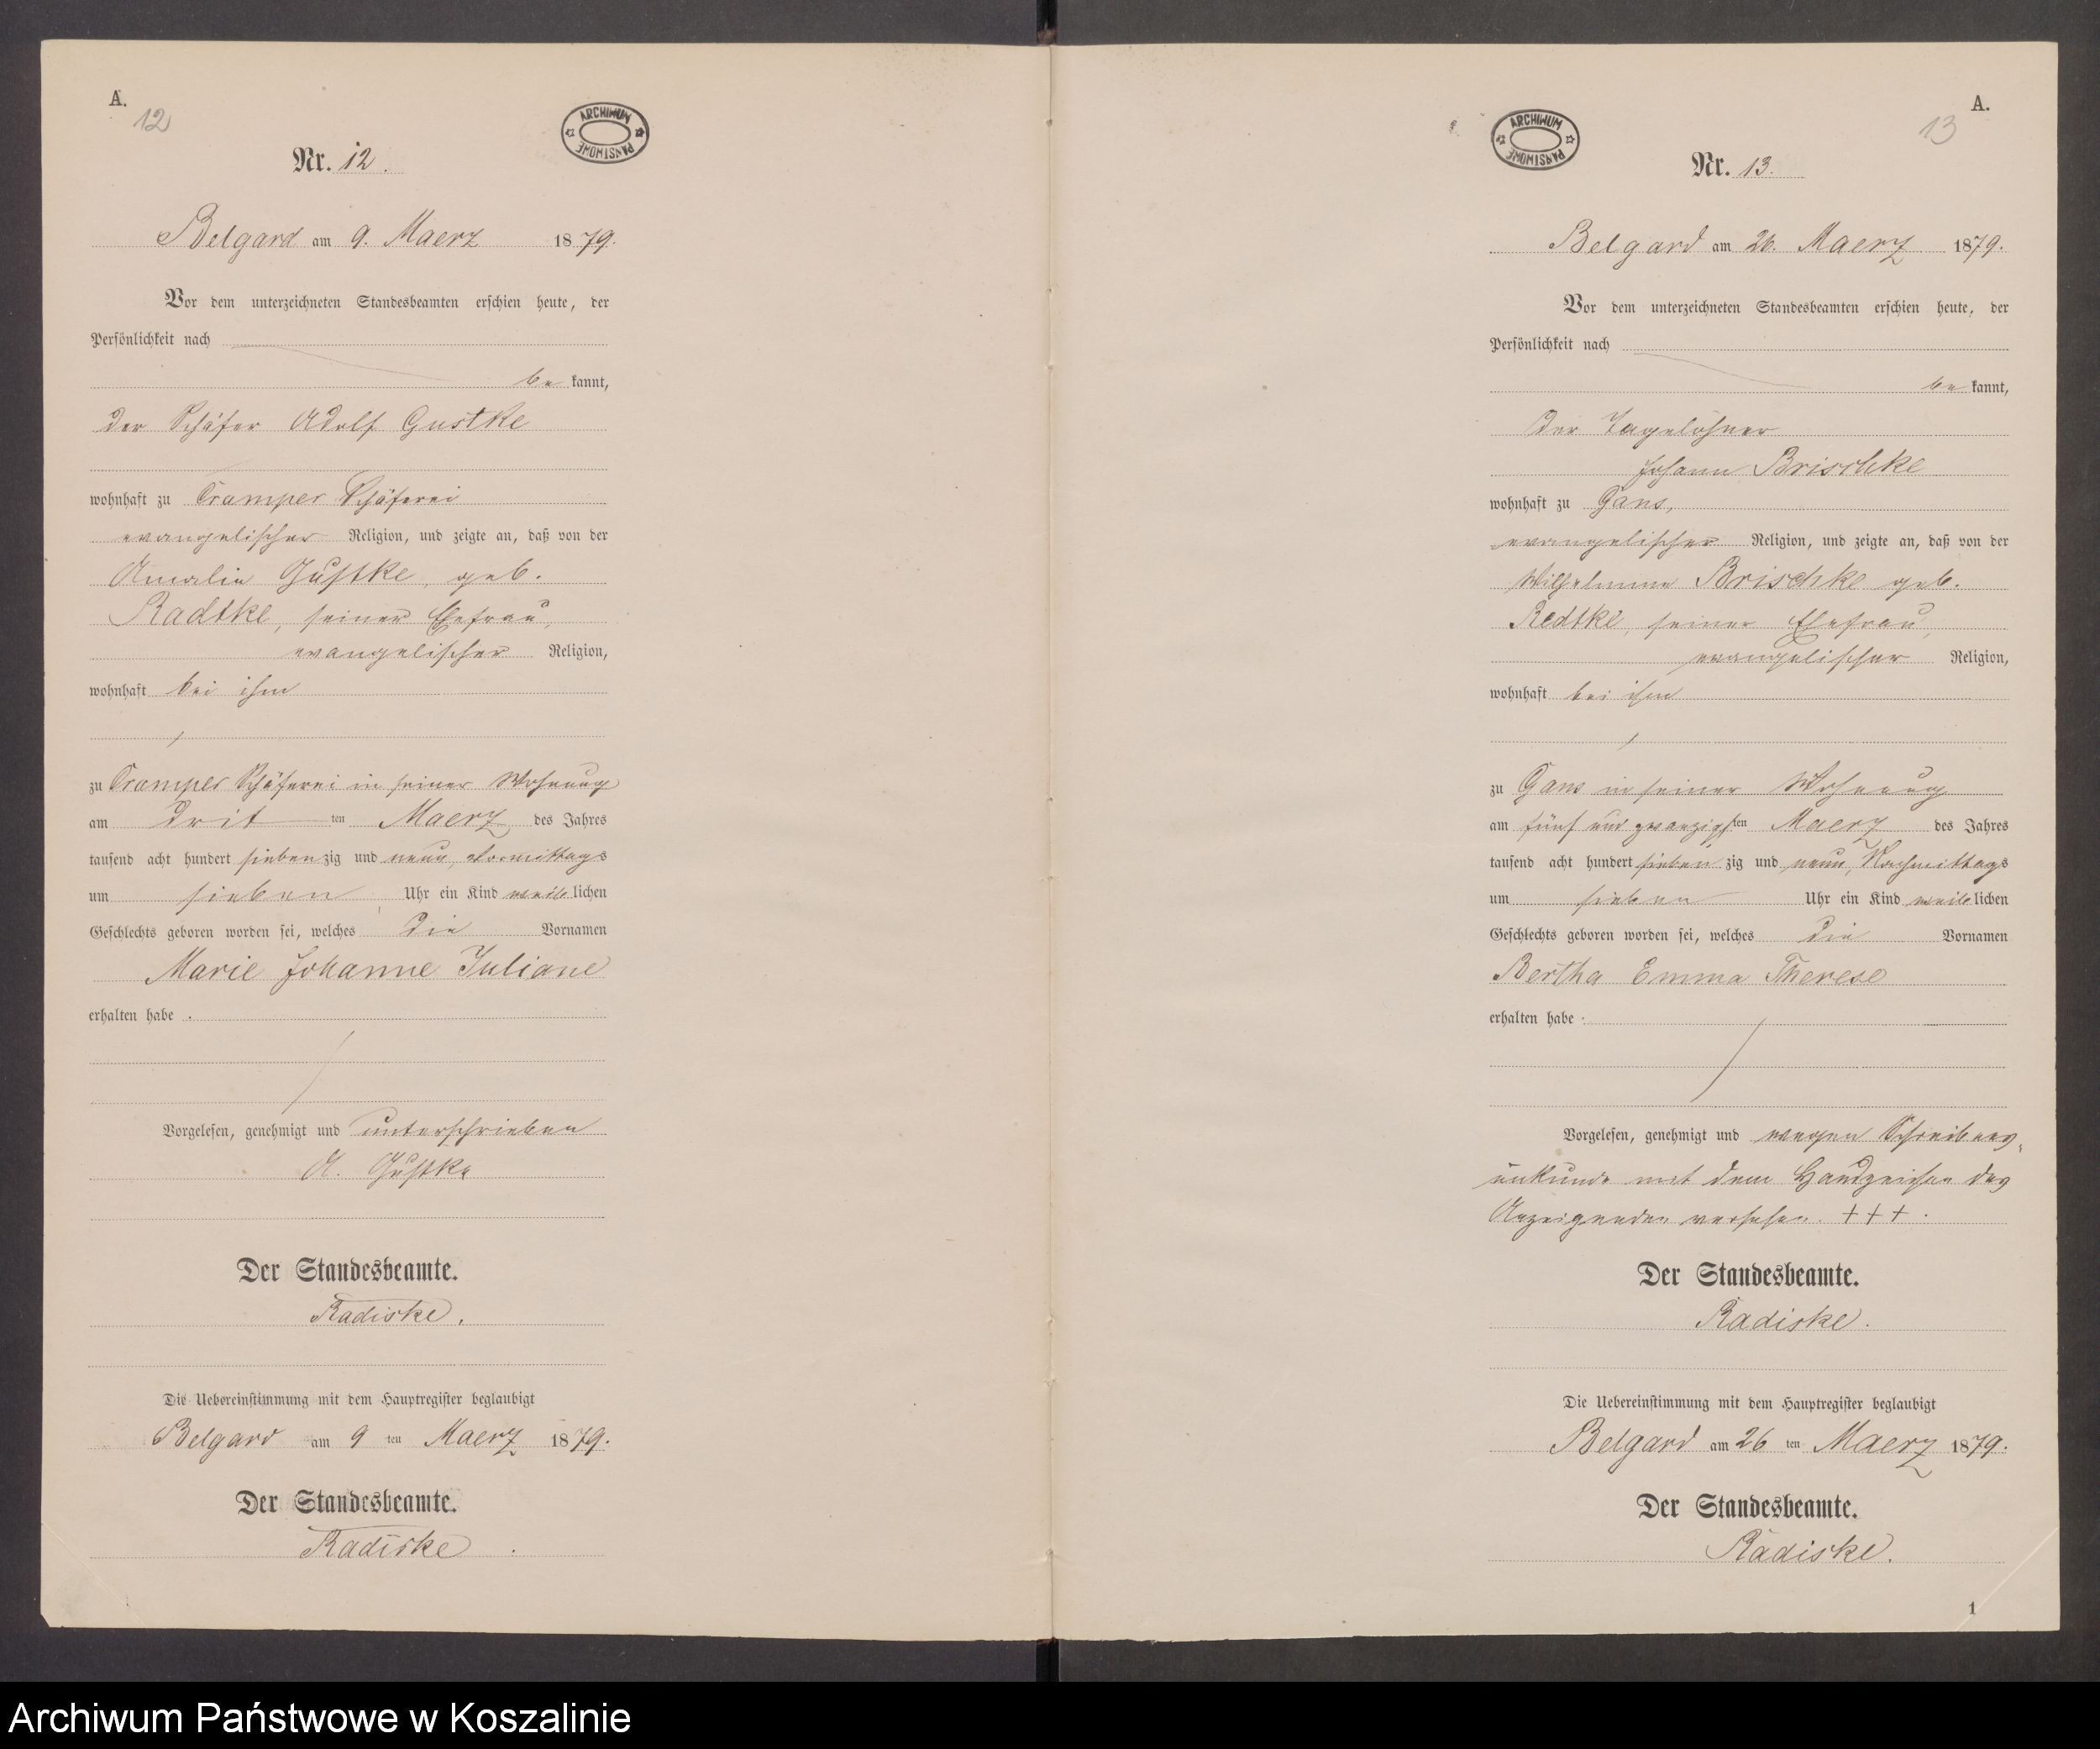 A.
12
ARCHIWUM
PAŃSTWOWE
Nr. 12.
Belgard am 9. Maerz 1879.
Vor dem unterzeichneten Standesbeamten erschien heute, der
Persönlichkeit nach
be kannt,
der Schäfer Adolf Gustke
wohnhaft zu Cramper Schäferei
evangelischer Religion, und zeigte an, daß von der
Amalie Gustke, geb.
Radtke, seiner Ehefrau,
evangelischer Religion,
wohnhaft bei ihm
zu Cramper Schäferei in seiner Wohnung
am drit ten Maerz des Jahres
tausend acht hundert sieben zig und neun, Vormittags
um sieben Uhr ein Kind weib lichen
Geschlechts geboren worden sei, welches die Vornamen
Marie Johanne Juliane
erhalten habe .
Vorgelesen, genehmigt und unterschrieben
A. Gustke
Der Standesbeamte.
Radiske.
Die Uebereinstimmung mit dem Hauptregister beglaubigt
Belgard am 9 ten Maerz 1879.
Der Standesbeamte.
Radiske
A.
13
ARCHIWUM
PAŃSTWOWE
Nr. 13.
Belgard am 26. Maerz 1879.
Vor dem unterzeichneten Standesbeamten erschien heute, der
Persönlichkeit nach
be kannt,
der Tagelöhner
Johann Brischke
wohnhaft zu Gans,
evangelischer Religion, und zeigte an, daß von der
Wilhelmine Brischke geb.
Redtke, seiner Ehefrau,
evangelischer Religion,
wohnhaft bei ihm
zu Gans in seiner Wohnung
am fünf und zwanzigsten Maerz des Jahres
tausend acht hundert sieben zig und neun, Nachmittags
um sieben Uhr ein Kind weib lichen
Geschlechts geboren worden sei, welches die Vornamen
Bertha Emma Therese
erhalten habe .
Vorgelesen, genehmigt und wegen Schreibens-
unkunde mit dem Handzeichen des
Anzeigenden versehen. + + + .
Der Standesbeamte.
Radiske.
Die Uebereinstimmung mit dem Hauptregister beglaubigt
Belgard am 26 ten Maerz 1879.
Der Standesbeamte.
Radiske.
1
Archiwum Państwowe w Koszalinie